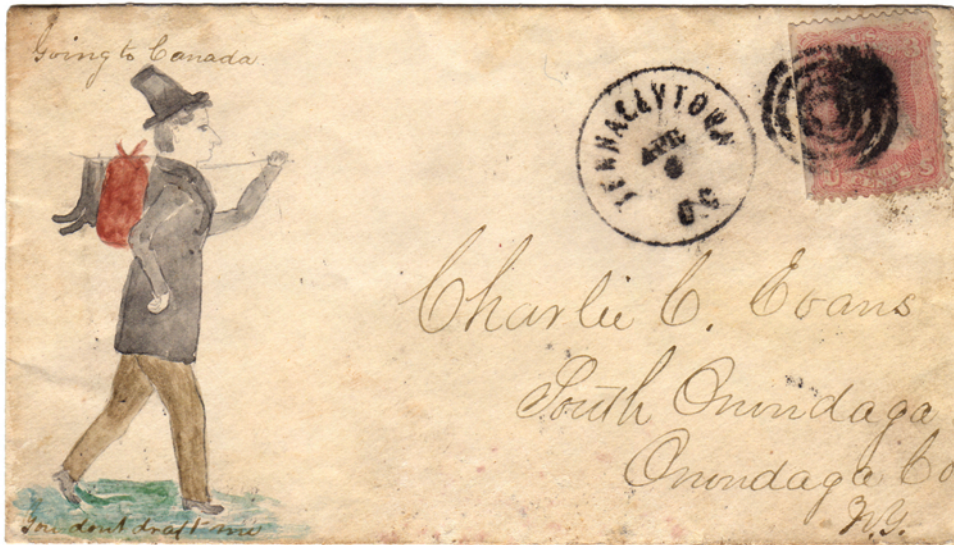 Going to Canada.
TENNALLYTOWN
APR
D.C.
U S
3
CENTS
Charlie C. Evans
South Onondaga
Onondaga Co
N.Y.
You dont draft me